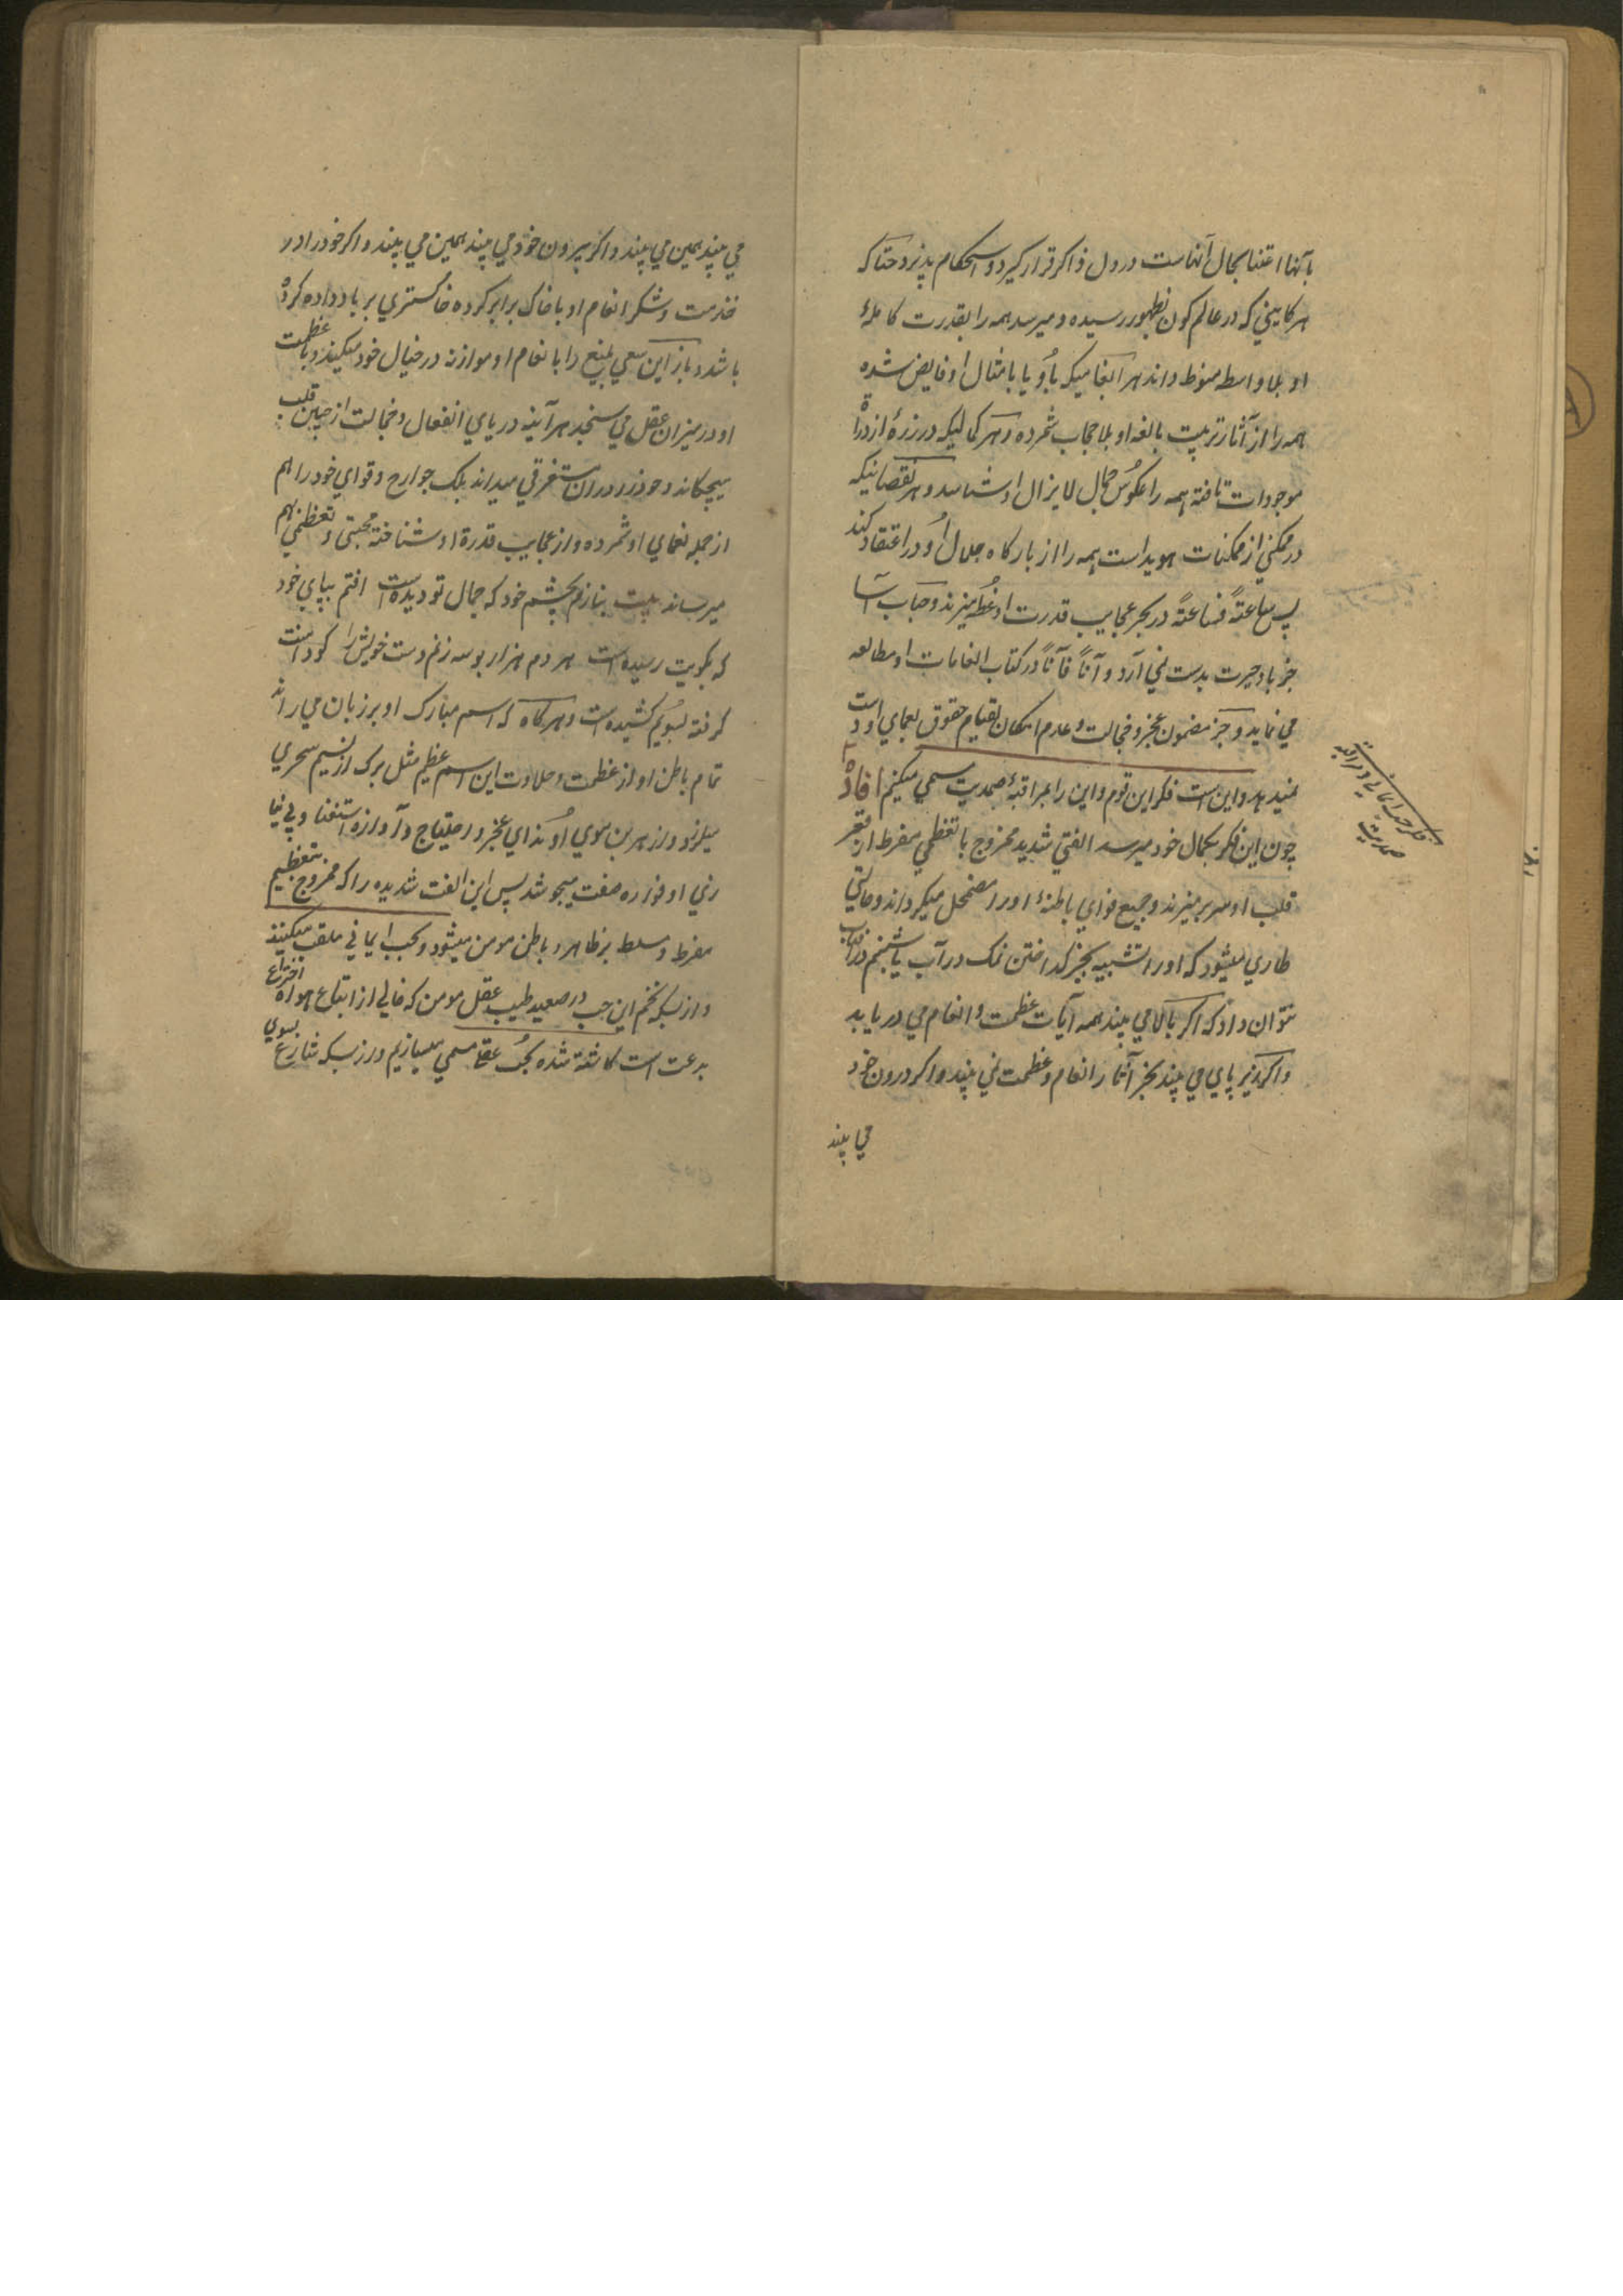 بآنها اعتنا بحال آنهاست در دل ذاکر قرار کیرد و استحکام پذیرد حتا که
هر کاینی که در عالم کون بظهور رسیده و میرسد همه را بقدرت کاملهٔ
او بلا واسطه منوط داند هر انعامیکه باو یا بامثال او فایض شده
همه را از آثار تربیت بالغه او بلا حجاب شمرده و هر کمالیکه در ذرهٔ از ذرات
موجودات تافته همه را عکوس جمال لایزال او شناسد و هر نقصانیکه
در ممکنی از ممکنات هویداست همه را از بارکاه جلال او دور اعتقاد کند
پس ساعةً فساعةً در بحر عجایب قدرت او غوطه میزند و حباب آسا
جز باد حیرت بدست نمی آرد و آناً فآناً در کتاب انعامات او مطالعه
می نماید و جز مضمون عجز و خجالت و عدم امکان بقیام حقوق نعمای او دست
نمیدهد و این است فکر این قوم و این را بمراقبهٔ صمدیت مسمی میکنیم افاده
چون این فکر بکمال خود میرسد الفتی شدید ممزوج با تعظیمی مفرط از قعر
قلب او سر بر میزند و جمیع قوای باطنهٔ او را مضمحل میکرداند و حالتی
طاری میشود که او را تشبیه بجز کداختن نمک در آب یا شبنم در آفتاب
نتوان داد که اکر بالا می بیند همه آیات عظمت و انعام می دریابد
و اکر زیر پای می بیند بجز آثار انعام و عظمت نمی بیند و اکر درون خود
می بیند
فکر حب ایمانی و مراقبه
صمدیت
می بیند همین می بیند و اکر بیرون خود می بیند همین می بیند و اکر خود را در
خدمت و شکر انعام او با خاک برابر کرده خاکستری بر باد داده کرده
باشد و باز این سعی بلیغ را با انعام او موازنه در خیال خود میکند و با عظمت
او در میزان عقل می سنجد هر آینه دریای انفعال و خجالت از جبین قلب
میچکاند و خود را دران مستغرقی میداند بلک جوارح و قوای خود را هم
از جمله نعمای او شمرده و از عجایب قدرة او شناخته محبتی و تعظیمی بهم
میرساند بیت بنازم بچشم خود که جمال تو دیده است افتم بپای خود
که بکویت رسیده است هر دم هزار بوسه زنم دست خویش را کو دامنت
کرفته بسویم کشیده است و هر کاه که اسم مبارک او بر زبان می راند
تمام باطن او از عظمت و حلاوت این اسم عظیم مثل برک از نسیم سحری
میلرزد و از هر بن موی او ندای عجز و احتیاج و آوازه استغنا و بی نیا
زی او فواره صفت میجوشد پس این الفت شدیده را که ممزوج بتعظیم
مفرط و مسلط بر ظاهر و باطن مومن میشود و بحب ایمانی ملقب میکنند
و از بسکه تخم این حب در صعید طیب عقل مومن که خالی از اتباع هوا و اختراع
بدعت است کاشته شده بحب عقلی مسمی میسازیم و از بسکه شارع بسوی